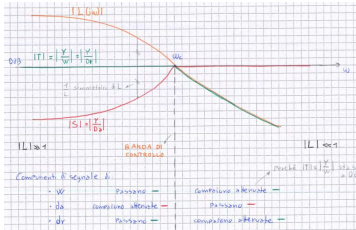 |L(jω)|
|T| = |Y/W| = |Y/Dr|
0dB
ωc
ω
1/L simmetrico di L
|S| = |Y/Da|
|L| ≫ 1
BANDA DI CONTROLLO
|L| ≪ 1
perché |T| = |Y/
Componenti di segnale di
· W Passano — compaiono attenuate —
· da compaiono attenuate — Passano —
· dr Passano — compaiono attenuate —